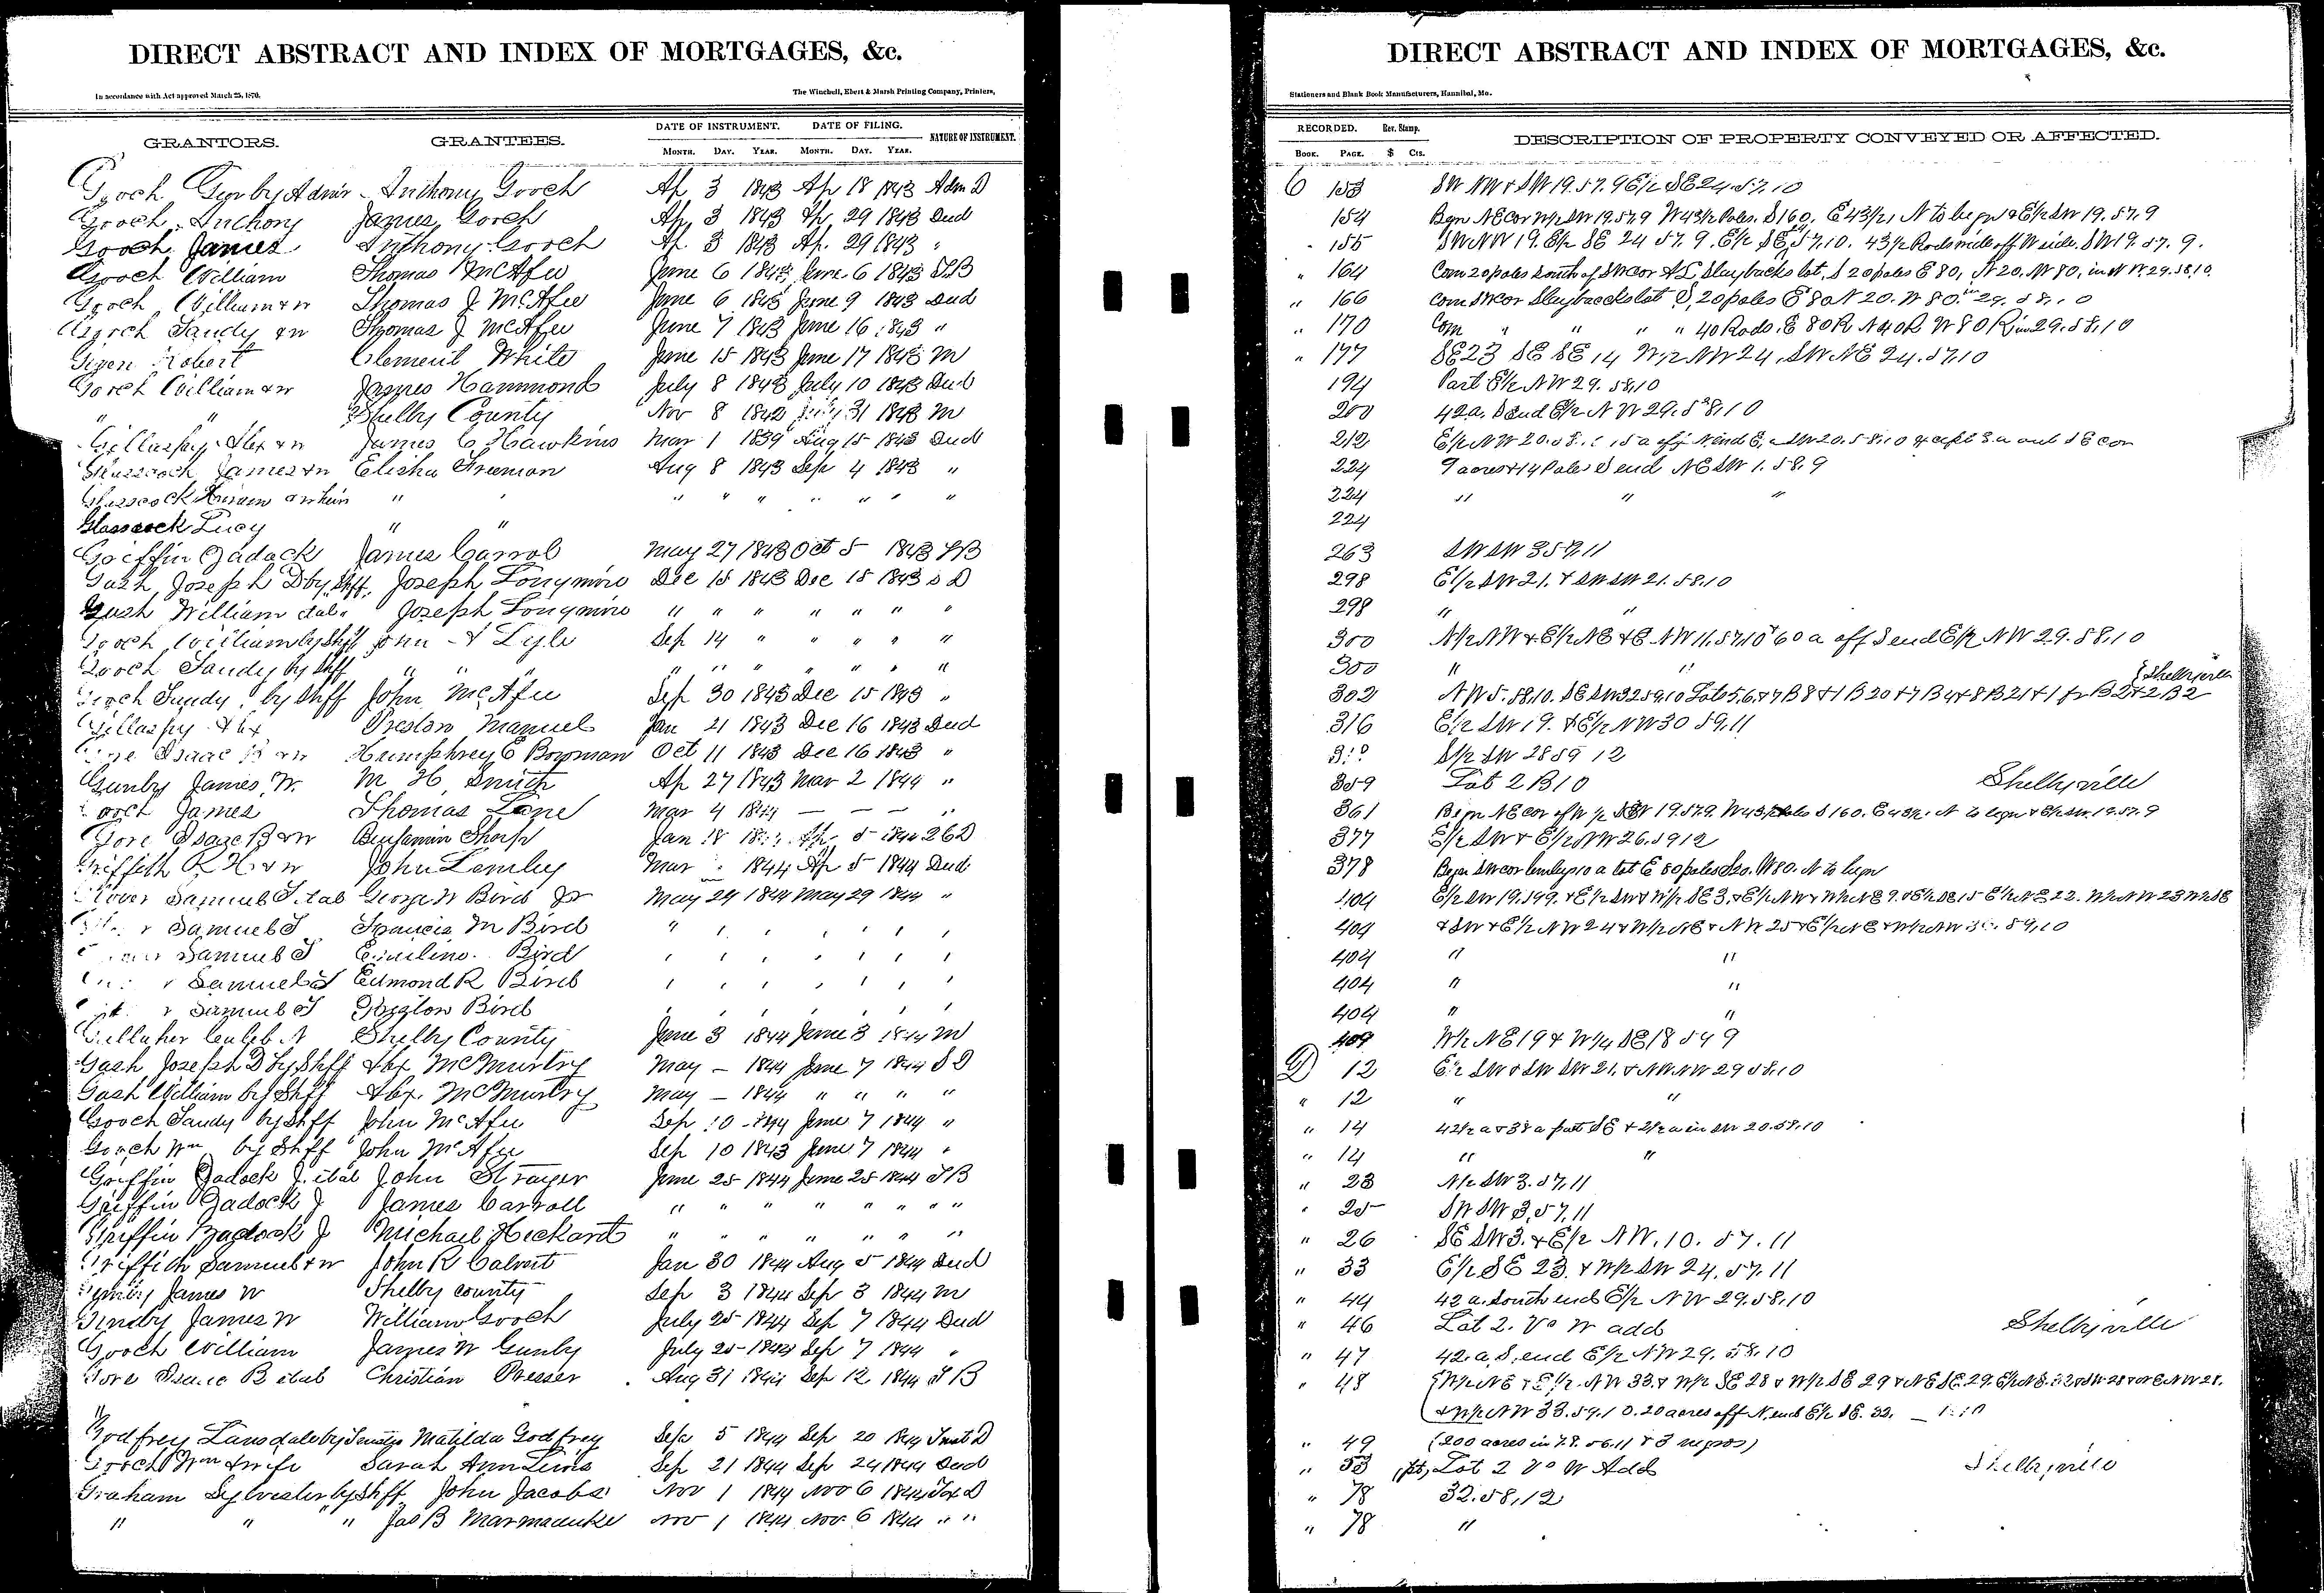 DIRECT ABSTRACT AND INDEX OF MORTGAGES, &c.
In accordance with Act approved March 25, 1870.
The Winchell, Ebert & Marsh Printing Company, Printers,
GRANTORS. GRANTEES. DATE OF INSTRUMENT. DATE OF FILING. NATURE OF INSTRUMENT.
MONTH. DAY. YEAR. MONTH. DAY. YEAR.
Gooch by Admr Anthony Gooch Ap 3 1843 Ap 18 1843 Adm D
Gooch Anthony James Gooch Ap 3 1843 Ap 29 1843 Deed
Gooch James Anthony Gooch Ap. 3 1843 Ap. 29 1843 "
Gooch William Thomas McAfee June 6 1843 June 6 1843 TB
Gooch William & w Thomas J McAfee June 6 1843 June 9 1843 Deed
Gooch Sandy & w Thomas J McAfee June 7 1843 June 16 1843 "
Robert Clement White June 15 1843 June 17 1843 M
Gooch William & w James Hammond July 8 1843 July 10 1843 Deed
" " Shelby County Nov 8 1842 July 31 1843 M
Gillaspy Alex & w James C Hawkins Mar 1 1839 Aug 15 1843 Deed
Glasscock James & w Elisha Freeman Aug 8 1843 Sep 4 1843 "
Glasscock " " " " " " " " "
Glasscock Lucy " "
Griffin Zadock James Carrol May 27 1843 Oct 5 1843 TB
Gash Joseph D by Shff. Joseph Longmire Dec 15 1843 Dec 15 1843 S D
Gash William etal " Joseph Longmire " " " " " " "
Gooch William by Shff John T Lyle Sep 14 " " " " "
Gooch Sandy by Shff " " " " " " " " " "
Gooch Sandy by Shff John McAfee Sep 30 1843 Dec 15 1843 "
Gillaspy Alex Preston Manuel Jan 21 1843 Dec 16 1843 Deed
Isaac B & w Humphrey E Bowman Oct 11 1843 Dec 16 1843 "
Gunby James W. M H Smith Ap 27 1843 Mar 2 1844 "
Gooch James Thomas Lane Mar 4 1844 — — — "
Gore Isaac B & w Benjamin Sharp Jan 18 Ap 5 1844
Griffith R H & w John Lemley Mar 1844 Ap 5 1844 Deed
Samuel S etal George W Bird Jr May 29 1844 May 29 1844 "
Samuel S Francis M Bird " " " " " " "
Samuel S Bird " " " " " " "
Samuel S Edmond R Bird " " " " " " "
Samuel S Bird " " " " " " "
Gallaher Caleb A Shelby County June 3 1844 June 3 1844 M
Gash Joseph D by Shff Alex McMurtry May — 1844 June 7 1844 S D
Gash William by Shff Alex. McMurtry May — 1844 " " " "
Gooch Sandy by Shff John McAfee Sep 10 1844 June 7 1844 "
Gooch Wm by Shff John McAfee Sep 10 1843 June 7 1844 "
Griffin Zadock J. etal John Strayer June 25 1844 June 25 1844 TB
Griffin Zadock J James Carroll " " " " " " "
Griffin Zadock J Michael Heckart " " " " " " "
Griffith Samuel & w John R Calvert Jan 30 1844 Aug 5 1844 Deed
Gunby James W Shelby County Sep 3 1844 Sep 3 1844 M
Gunby James W William Gooch July 25 1844 Sep 7 1844 Deed
Gooch William James W Gunby July 25 1844 Sep 7 1844 "
Gore Isaac B etal Christian Presser Aug 31 1844 Sep 12 1844 TB
Godfrey Lansdale by Trustee Matilda Godfrey Sep 5 1844 Sep 20 1844 Trust D
Gooch Wm & wife Sarah Ann Lewis Sep 21 1844 Sep 24 1844 Deed
Graham Sylvester by Shff John Jacobs Nov 1 1844 Nov 6 1844 Tax D
" " " Jas B Marmaduke Nov 1 1844 Nov 6 1844 " "
DIRECT ABSTRACT AND INDEX OF MORTGAGES, &c.
Stationers and Blank Book Manufacturers, Hannibal, Mo.
RECORDED. Rev. Stamp. DESCRIPTION OF PROPERTY CONVEYED OR AFFECTED.
BOOK. PAGE. $ Cts.
C 153 SW NW & SW 19.57.9 E1/2 SE 24.57.10
154 Begn NE Cor W1/2 SW 19.57.9 W 43 1/2 Poles. S 160, E 43 1/2, N to begn & E1/2 SW 19.57.9
" 155 SW NW 19. E1/2 SE 24 57.9. E1/2 SE 57.10. 43 1/2 Rods wide off W side. SW 19.57.9.
" 164 Com 20 poles south of SW cor Slaybacks lot, S 20 poles E 80, N 20, W 80, in 29.58.10
" 166 Com SW cor Slaybacks lot S, 20 poles E 80 N 20. W 80 in 29.58.10
" 170 Com " " " " 40 Rods, E 80 R N 40 R W 80 R in 29.58.10
" 177 SE 23 SE SE 14 W1/2 NW 24, SW NE 24.57.10
194 Part E1/2 NW 29.58.10
200 42 a. S end E1/2 NW 29.58.10
212 E1/2 NW 20.58.
224 9 acres & 14 Poles S end NE SW 1.58.9
224 " " "
224
263 SW SW 3 57.11
298 E1/2 SW 21. & SW SW 21.58.10
298 " "
300 N1/2 NW & E1/2 NE & E NW 11.57.10 60 a off S end E1/2 NW 29.58.10
300 " " {Shelbyville
302 NW 5.58.10. SE SW 32 59.10 Lots 5.6.&7 B8 & 1 B20 & 7 B4 & 8 B21 & 1 B2 & 2 B2
316 E1/2 SW 19. & E1/2 NW 30 59.11
S1/2 SW 28 59 12
359 Lot 2 B10 Shelbyville
361 Begn NE cor of W1/2 SW 19.57.9. W 43 1/2 poles S 160. E 43 1/2. N to begn & E1/2 SW. 19.57.9
377 E1/2 SW & E1/2 NW 26.59 12
378 Begn SW cor Lemleys 10 a lot E 80 poles S 20. W 80. N to begn
404 E1/2 SW 19.59.9. & E1/2 SW & W1/2 SE 3. & E1/2 NW & W1/2 NE 9. & E1/2 SE 15 E1/2 NE 22. W1/2 NW 23 W1/2 SE
404 & SW & E1/2 NW 24 & W1/2 NE & NW 25 & E1/2 NE & W1/2 NW 59.10
404 " "
404 " "
404 " "
409 W1/2 NE 19 & W1/4 SE 18 59 9
D 12 E1/2 SW & SW SW 21. & NW NW 29 58.10
" 12 " "
" 14 42 1/2 a & 38 a part SE & 2 1/2 a in SW 20.58.10
" 14 " "
" 23 N1/2 SW 3.57.11
" 25 SW SW 3.57.11
" 26 SE SW 3. & E1/2 NW. 10. 57. 11
" 33 E1/2 SE 23. & W1/2 SW 24.57.11
" 44 42 a. south end E1/2 NW 29.58.10
" 46 Lot 2. Vo W add Shelbyville
" 47 42. a S. end E1/2 NW 29. 58.10
" 48 {W1/2 NE & E1/2 NW 33. & W1/2 SE 28 & W1/2 SE 29 & NE SE 29.
& W1/2 NW 33.59.10. 20 acres off N. end E1/2 SE. 32.
" 49 (200 acres in 7.8. 56.11 & 3 negros)
" 53 pt, Lot 2 Vo W Add Shelbyville
" 78 32.58.12
" 78 "